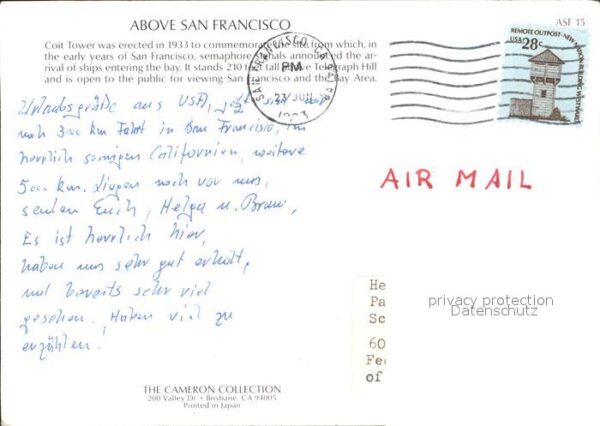 ABOVE SAN FRANCISCO
ASF 15
Coit Tower was erected in 1933 to commemorate the site from which, in
the early years of San Francisco, semaphore signals announced the ar-
rival of ships entering the bay. It stands 210 feet tall above Telegraph Hill
and is open to the public for viewing San Francisco and the Bay Area.
SAN FRANCISCO, CA
PM
23 JUL
1993
REMOTE OUTPOST · NEW NATION BUILDING WESTWARD
USA 28c
Urlaubsgrüße aus USA, jetzt sind wir
nach 3000 km Fahrt in San Francisco, im
herrlich sonnigen Californien, weitere
5000 km liegen noch vor uns,
senden Euch, Helga u. Bruno,
Es ist herrlich hier,
haben uns sehr gut erholt,
und bereits sehr viel
gesehen. Haben viel zu
erzählen!
AIR MAIL
He
Pa
Sc
60
Fe
of
privacy protection
Datenschutz
THE CAMERON COLLECTION
200 Valley Dr. • Brisbane, CA 94005
Printed in Japan